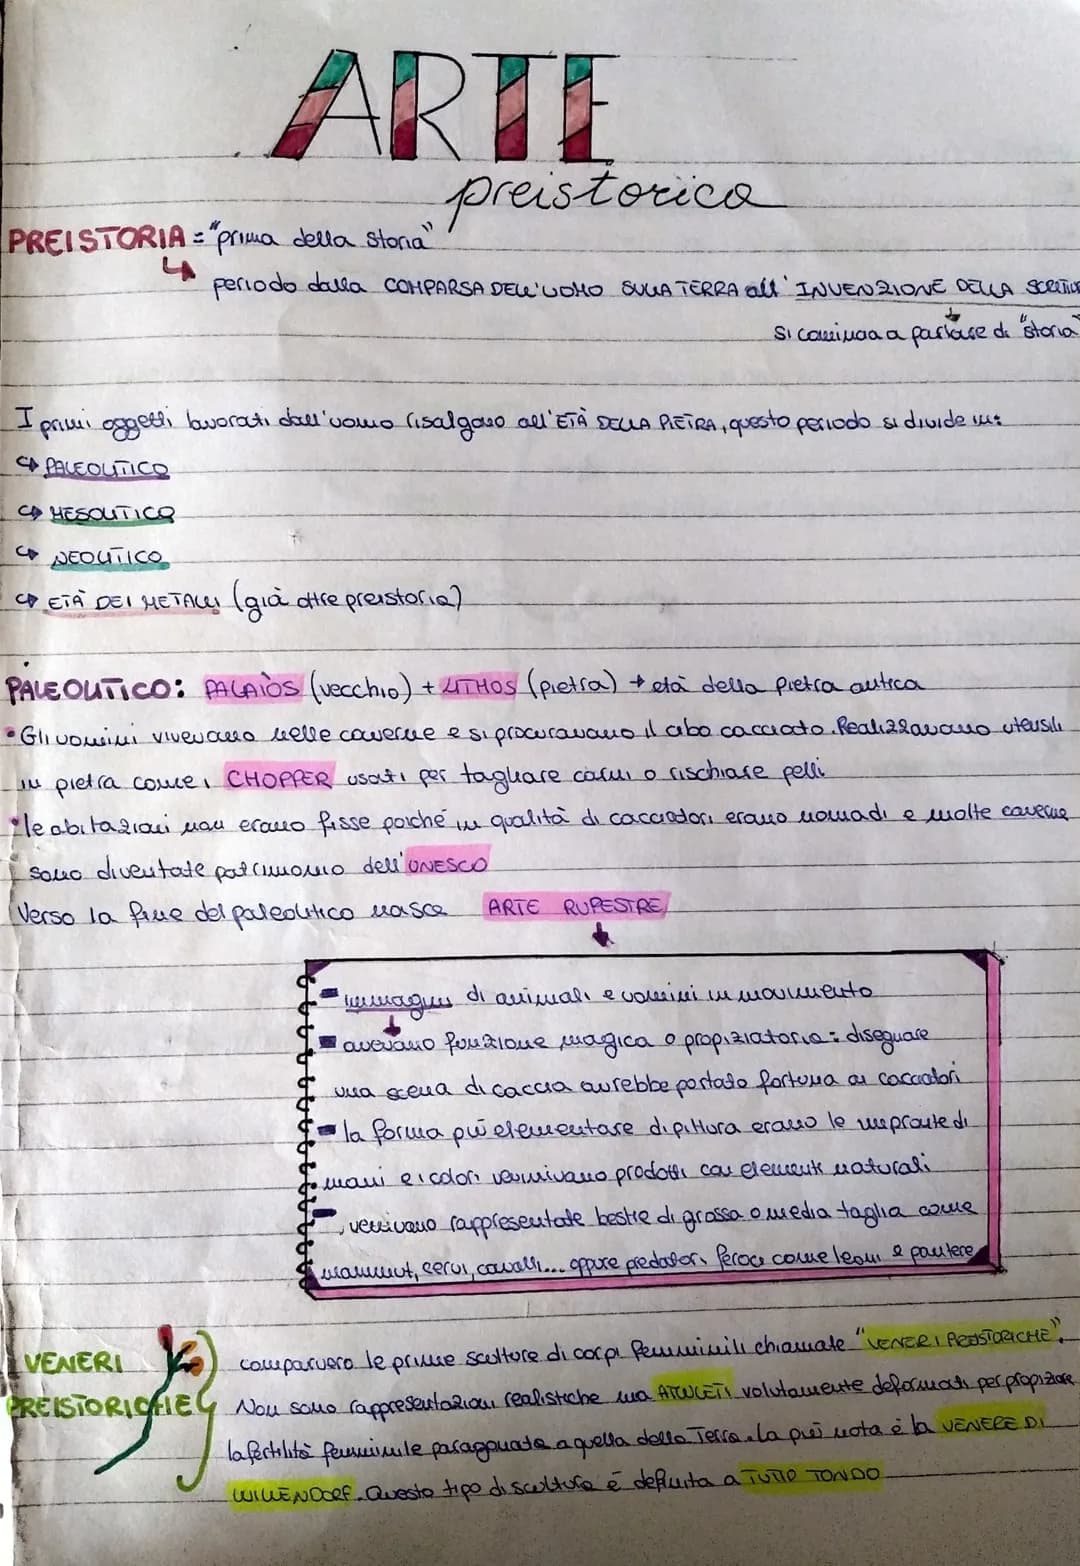 ARTE
preistorica
PREISTORIA = "prima della storia"
↳ periodo dalla COMPARSA DELL'UOMO SULLA TERRA all' INVENZIONE DELLA
si comincia a parlare di "storia"
I primi oggetti lavorati dall'uomo risalgono all'ETÀ DELLA PIETRA, questo periodo si divide in:
↳ PALEOLITICO
↳ MESOLITICO
↳ NEOLITICO
↳ ETÀ DEI METALLI (già oltre preistoria)
PALEOLITICO: PALAIÒS (vecchio) + LITHOS (pietra) → età della pietra antica
• Gli uomini vivevano nelle caverne e si procuravano il cibo cacciato. Realizzavano utensili
in pietra come i CHOPPER usati per tagliare carni o rischiare pelli
• le abitazioni non erano fisse poiché in qualità di cacciatori erano nomadi e molte caverne
sono diventate patrimonio dell'UNESCO
Verso la fine del paleolitico nasce ARTE RUPESTRE
- immagini di animali e uomini in movimento
- avevano funzione magica o propiziatoria: disegnare
una scena di caccia avrebbe portato fortuna ai cacciatori
- la forma più elementare di pittura erano le impronte di
mani e i colori venivano prodotti con elementi naturali
- venivano rappresentate bestie di grossa o media taglia come
mammut, cervi, cavalli... oppure predatori feroci come leoni e pantere
VENERI
PREISTORICHE
comparvero le prime sculture di corpi femminili chiamate "VENERI PREISTORICHE".
Non sono rappresentazioni realistiche ma AMULETI volutamente deformati per propiziare
la fertilità femminile paragonata a quella della Terra. La più nota è la VENERE DI
WILLENDORF. Questo tipo di scultura è definita a TUTTO TONDO